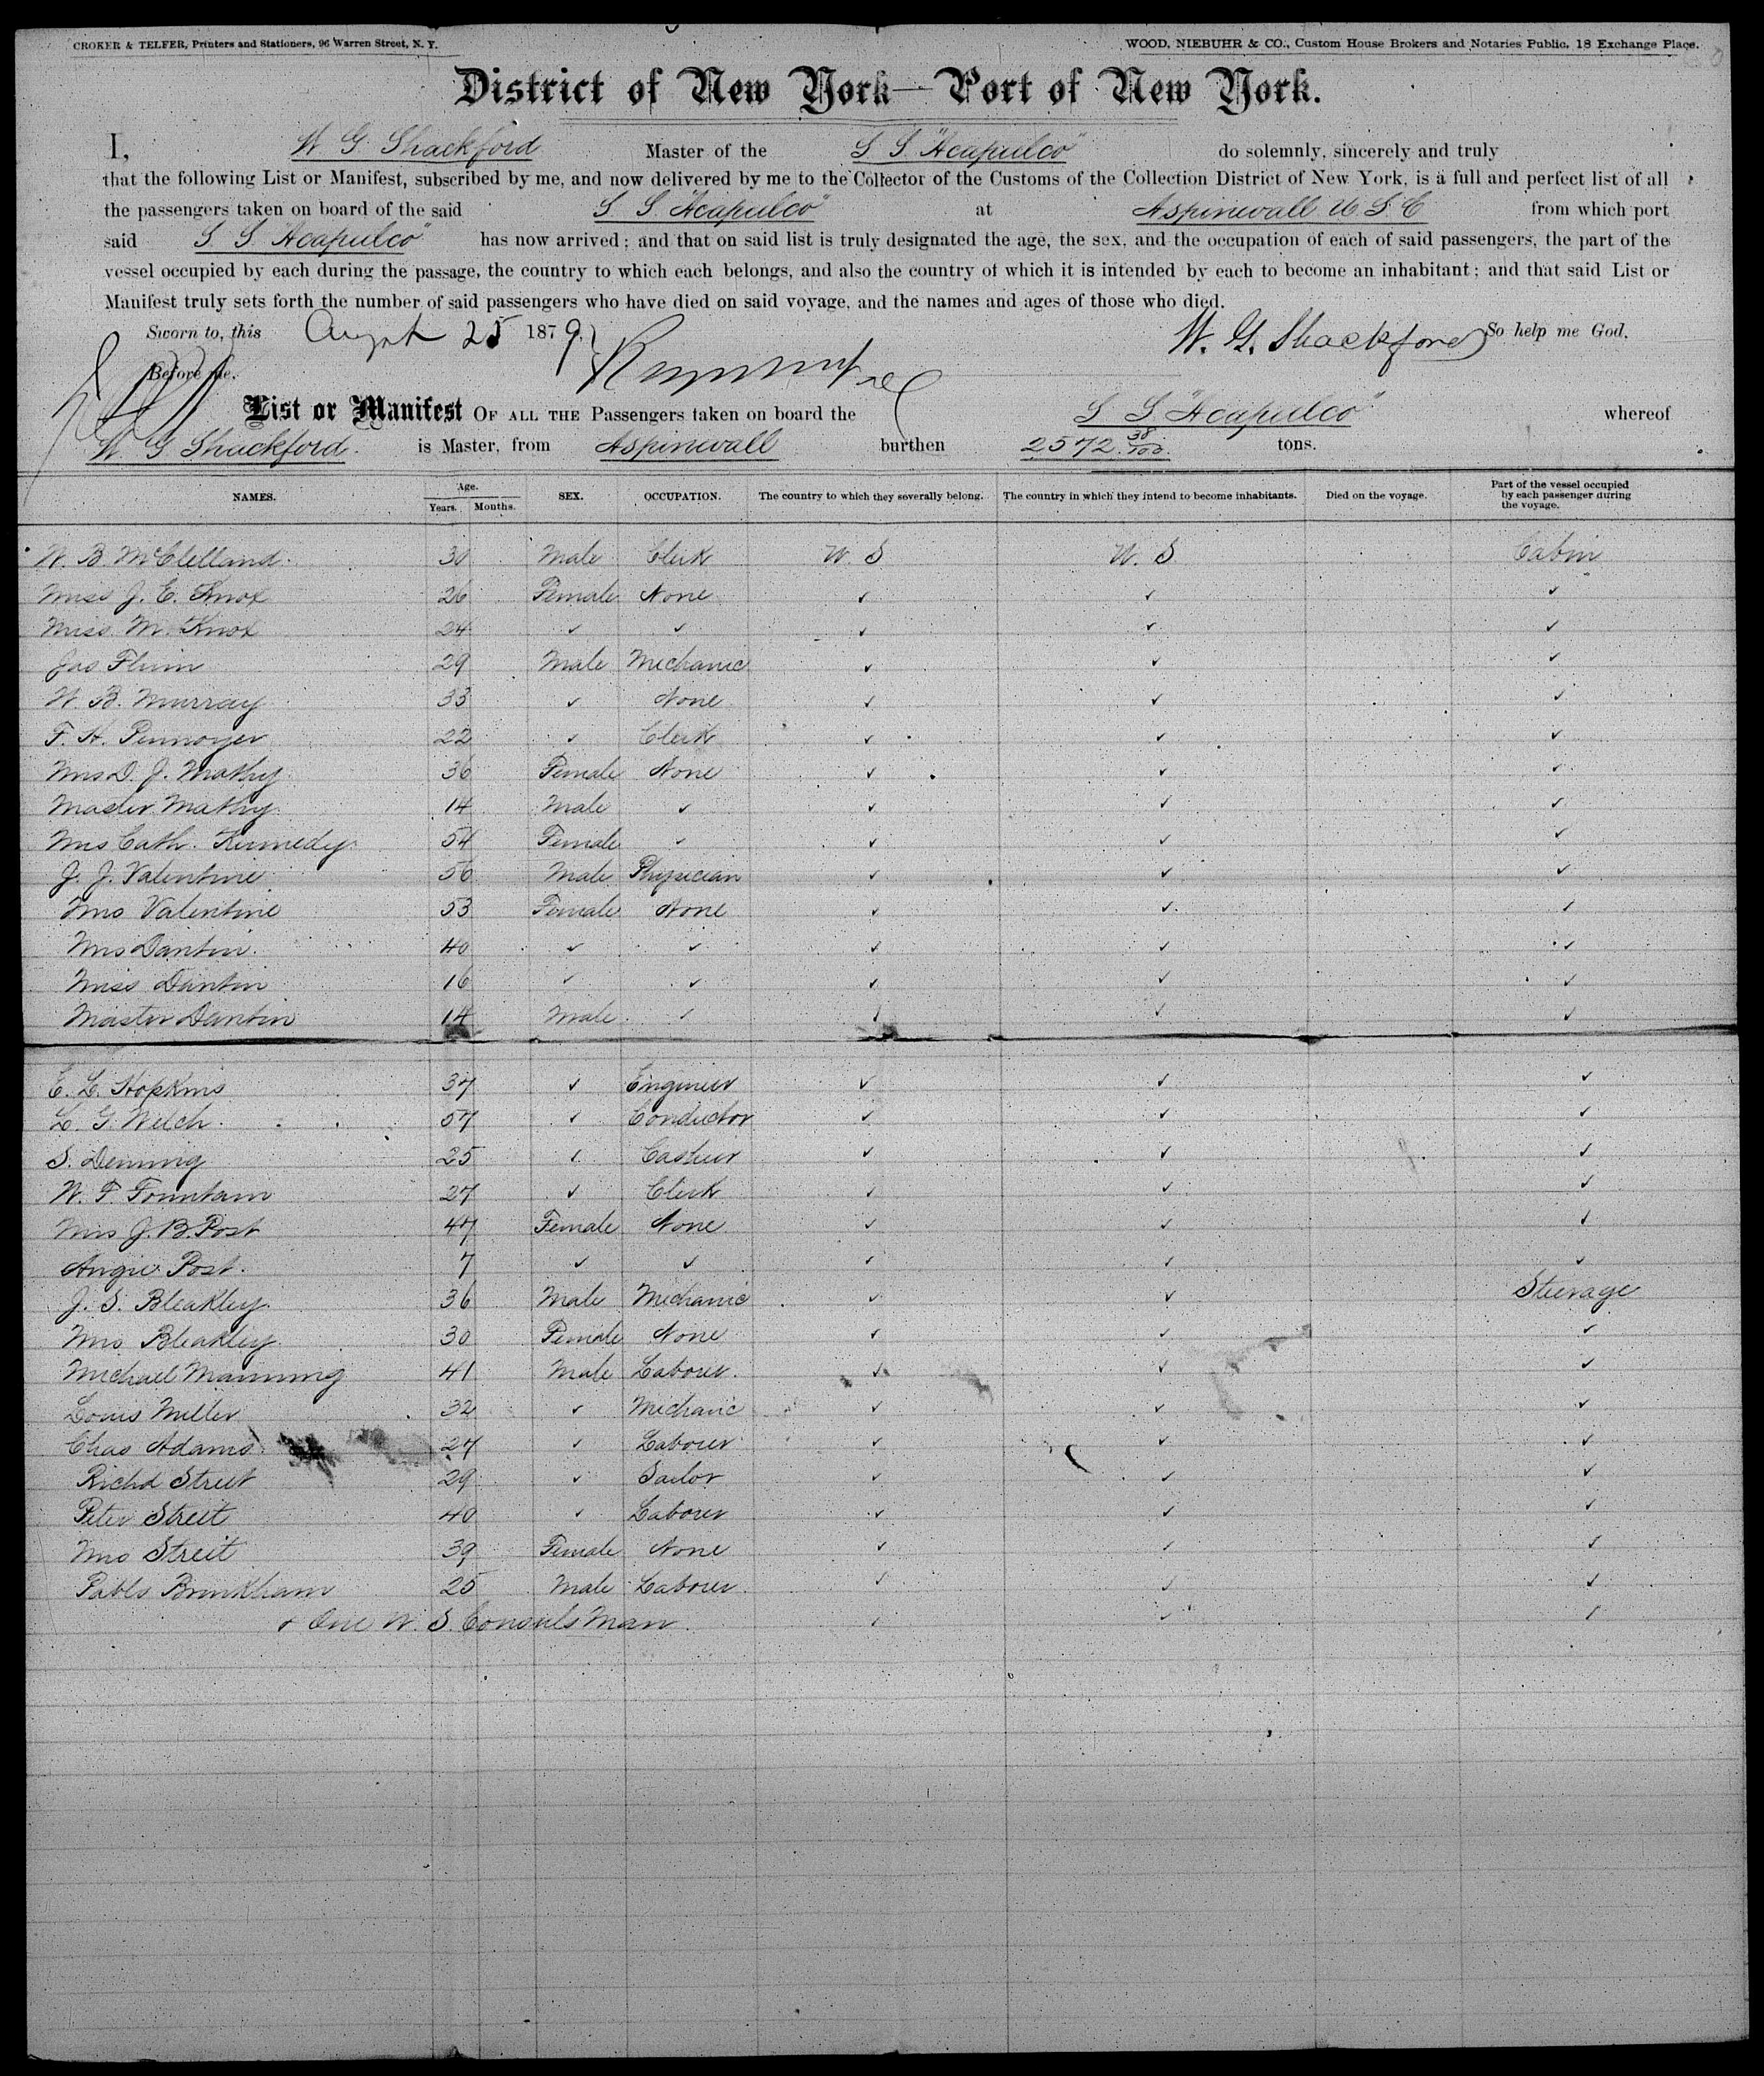 CROKER & TELFER, Printers and Stationers, 96 Warren Street, N. Y. WOOD, NIEBUHR & CO., Custom House Brokers and Notaries Public, 18 Exchange Place.
District of New York—Port of New York.
I, W. G. Shackford Master of the S. S. "Acapulco" do solemnly, sincerely and truly
that the following List or Manifest, subscribed by me, and now delivered by me to the Collector of the Customs of the Collection District of New York, is a full and perfect list of all
the passengers taken on board of the said S. S. "Acapulco" at Aspinwall U. S. C from which port
said S. S. Acapulco" has now arrived; and that on said list is truly designated the age, the sex, and the occupation of each of said passengers, the part of the
vessel occupied by each during the passage, the country to which each belongs, and also the country of which it is intended by each to become an inhabitant; and that said List or
Manifest truly sets forth the number of said passengers who have died on said voyage, and the names and ages of those who died.
Sworn to, this August 25 1879. W. G. Shackford So help me God.
Before me,
List or Manifest OF ALL THE Passengers taken on board the S. S. "Acapulco" whereof
W. G Shackford. is Master, from Aspinwall burthen 2572 38/100 tons.
NAMES. Age. Years. Months. SEX. OCCUPATION. The country to which they severally belong. The country in which they intend to become inhabitants. Died on the voyage. Part of the vessel occupied by each passenger during the voyage.
W. B. McClelland. 30 Male Clerk U. S U. S. Cabin
Miss J. E. Knox 26 Female None ✓ ✓ ✓
Miss M. Knox 24 ✓ ✓ ✓ ✓ ✓
Jas Flinn 29 Male Mechanic ✓ ✓ ✓
W. B. Murray 33 ✓ None ✓ ✓ ✓
F. H. Pennoyer 22 ✓ Clerk ✓ ✓ ✓
Mrs D. J. Mathy 36 Female None ✓ ✓ ✓
Master Mathy 14 Male ✓ ✓ ✓ ✓
Mrs Cath. Kennedy 54 Female ✓ ✓ ✓ ✓
J. J. Valentine 56 Male Physician ✓ ✓ ✓
Mrs Valentine 53 Female None ✓ ✓ ✓
Mrs Dantin. 40 ✓ ✓ ✓ ✓ ✓
Miss Dantin 16 ✓ ✓ ✓ ✓ ✓
Master Dantin 14 Male ✓ ✓ ✓ ✓
E. L. Hopkins 37 ✓ Engineer ✓ ✓ ✓
L. G. Welch. 57 ✓ Conductor ✓ ✓ ✓
S. Deming 25 ✓ Cashier ✓ ✓ ✓
W. F. Fountain 27 ✓ Clerk ✓ ✓ ✓
Mrs J. B. Post 47 Female None ✓ ✓ ✓
Angie Post. 7 ✓ ✓ ✓ ✓ ✓
J. S. Bleakley. 36 Male Mechanic ✓ ✓ Steerage
Mrs Bleakley 30 Female None ✓ ✓ ✓
Michael Manning 41 Male Laborer. ✓ ✓ ✓
Louis Miller 32 ✓ Mechanic ✓ ✓ ✓
Chas Adams 27 ✓ Laborer ✓ ✓ ✓
Richd Street 29 ✓ Sailor ✓ ✓ ✓
Peter Street 40 ✓ Laborer ✓ ✓ ✓
Mrs Street 39 Female None ✓ ✓ ✓
Pablo Brinkham 25 Male Laborer. ✓ ✓ ✓
& One U. S. Consuls Man. ✓ ✓ ✓